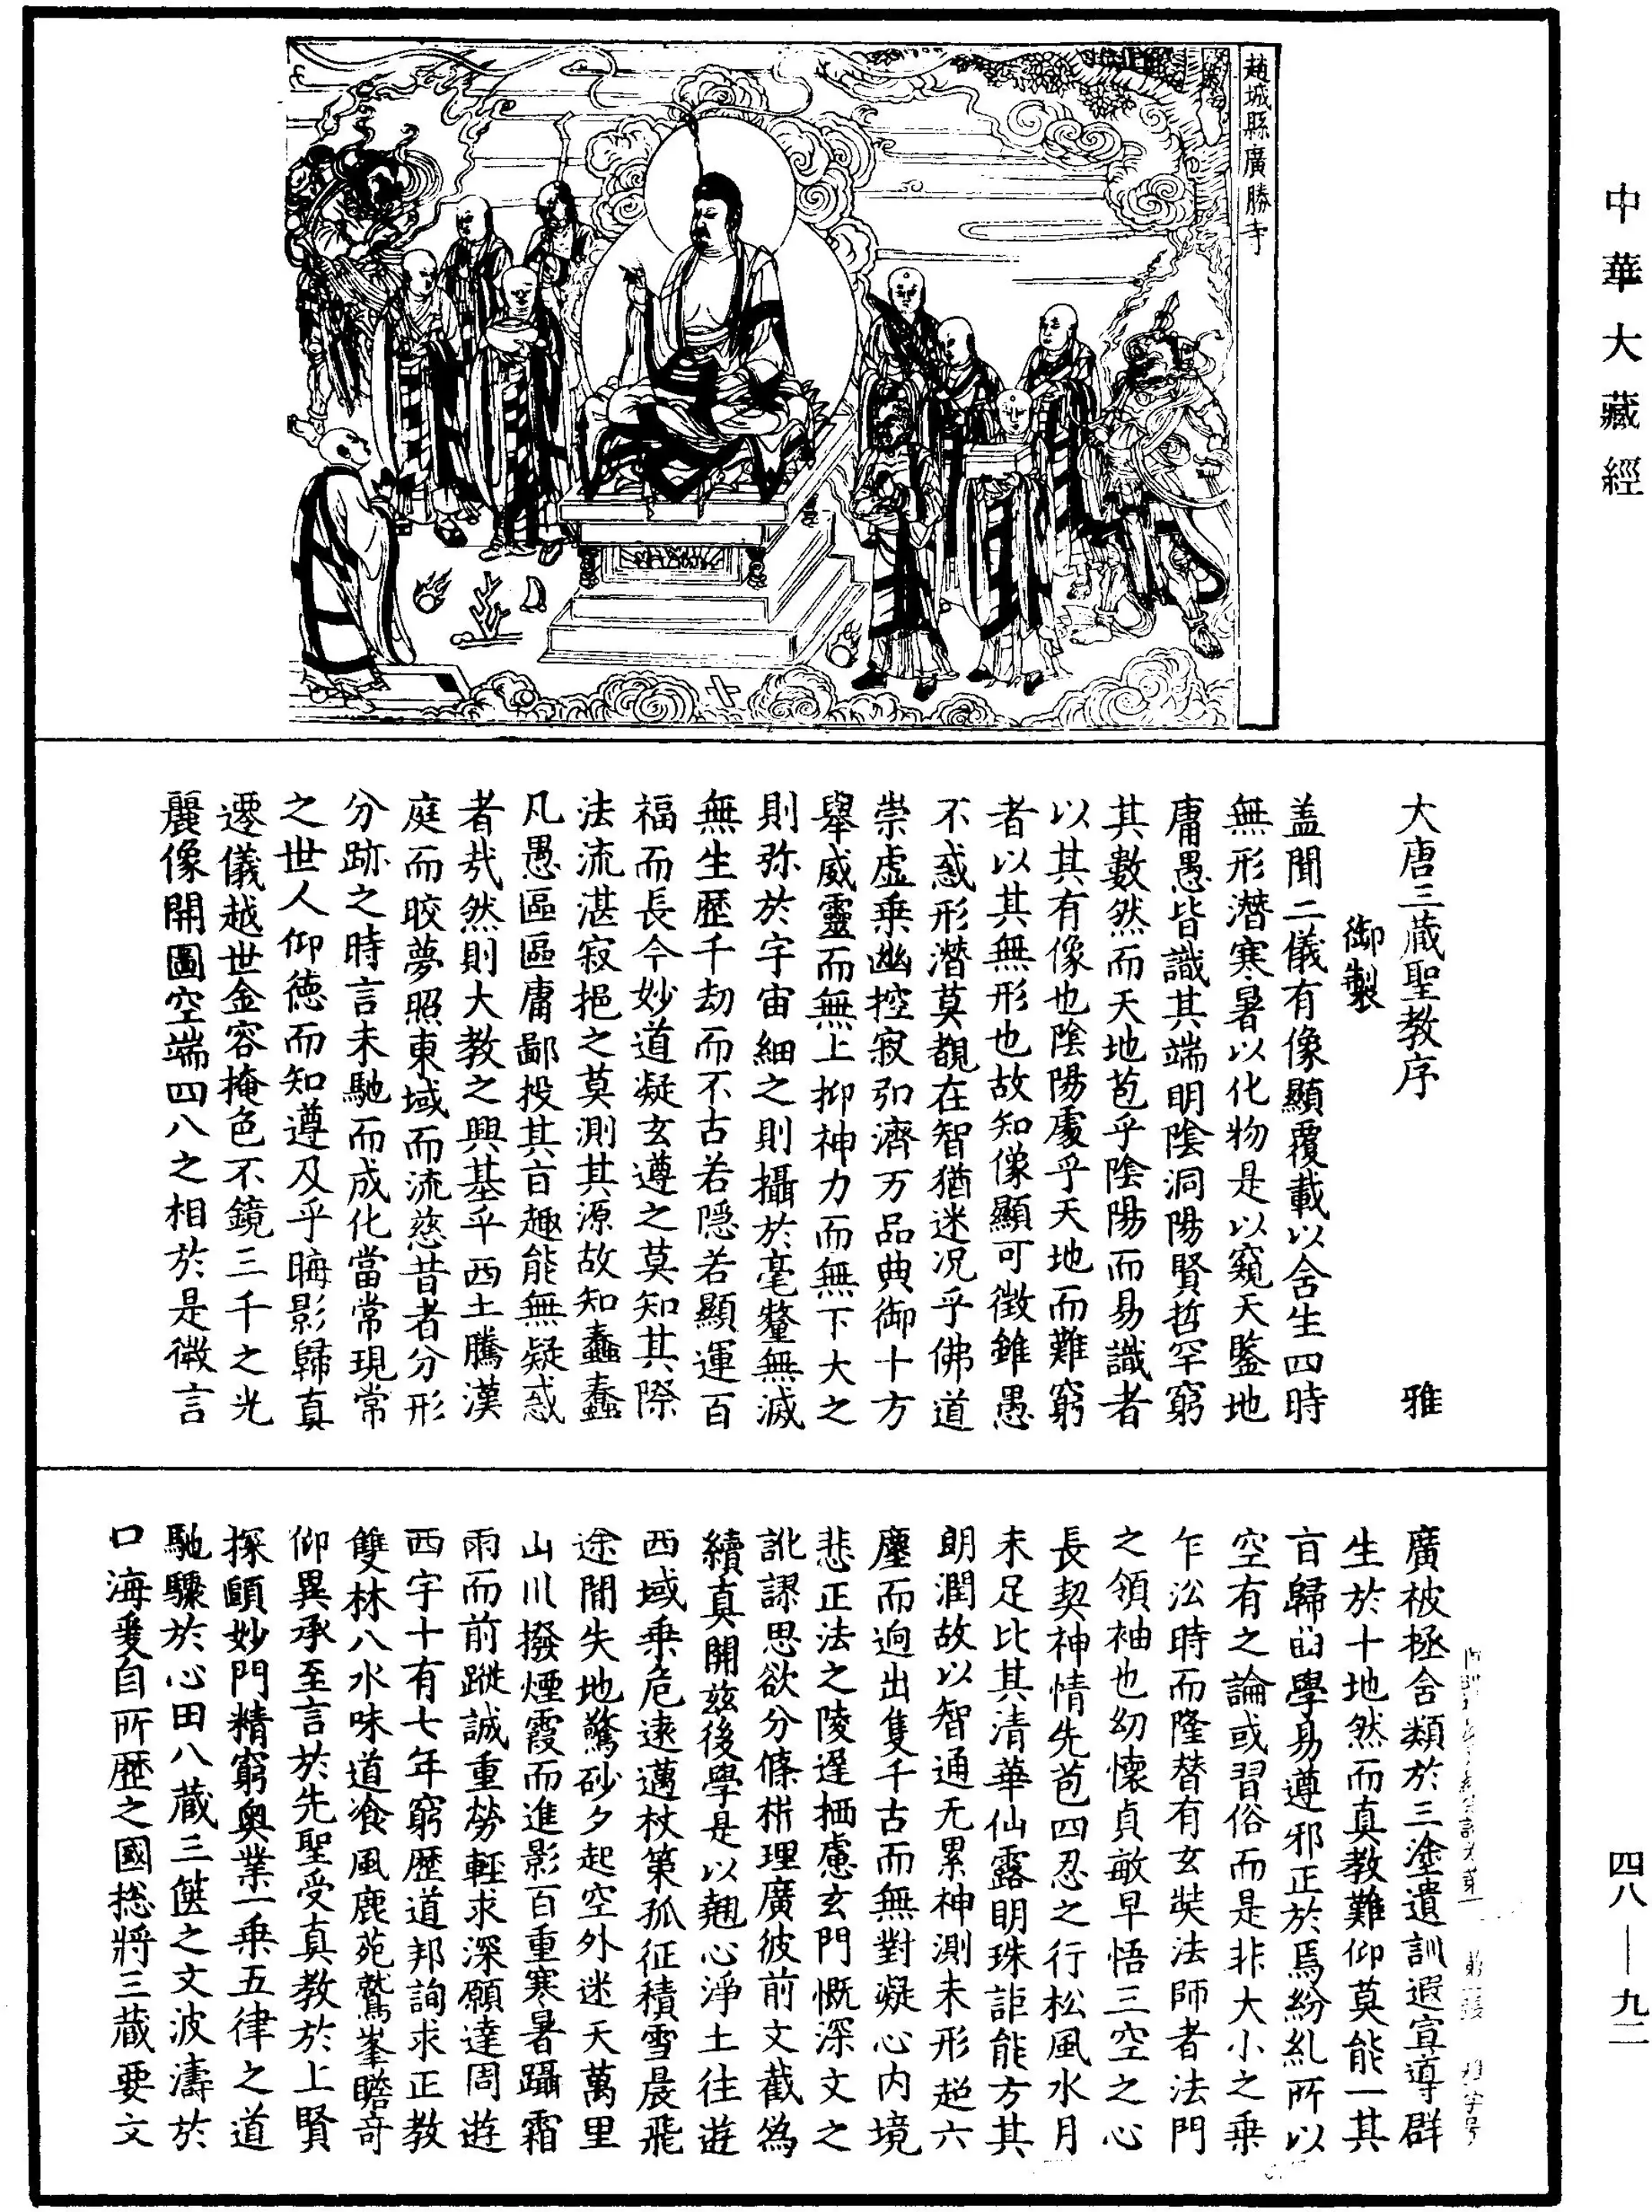 中華大藏經
趙城縣廣勝寺
大唐三蔵聖教序 雅
御製
盖聞二儀有像顯覆載以含生四時
無形潛寒暑以化物是以窺天鑒地
庸愚皆識其端明陰洞陽賢哲罕窮
其數然而天地苞乎陰陽而易識者
以其有像也陰陽處乎天地而難窮
者以其無形也故知像顯可徵雖愚
不惑形潛莫覩在智猶迷况乎佛道
崇虛乗幽控寂弘濟万品典御十方
舉威靈而無上抑神力而無下大之
則弥於宇宙細之則攝於毫釐無滅
無生歷千劫而不古若隠若顯運百
福而長今妙道凝玄遵之莫知其際
法流湛寂挹之莫測其源故知蠢蠢
凡愚區區庸鄙投其㫖趣能無疑惑
者㢤然則大教之興基乎西土騰漢
庭而皎夢照東域而流慈昔者分形
分跡之時言未馳而成化當常現常
之世人仰徳而知遵及乎晦影歸真
遷儀越世金容掩色不鏡三千之光
麗像開圖空端四八之相於是微言
廣被拯含類於三塗遺訓遐宣導群
生於十地然而真教難仰莫能一其
㫖歸曲學易遵邪正於焉紛糺所以
空有之論或習俗而是非大小之乗
乍沿時而隆替有玄奘法師者法門
之領袖也幼懷貞敏早悟三空之心
長契神情先苞四忍之行松風水月
未足比其清華仙露明珠詎能方其
朗潤故以智通无累神測未形超六
塵而逈出隻千古而無對凝心内境
悲正法之陵遲栖慮玄門慨深文之
訛謬思欲分條析理廣彼前文截僞
續真開兹後學是以翹心淨土往遊
西域乗危逺邁杖策孤征積雪晨飛
途間失地驚砂夕起空外迷天萬里
山川撥煙霞而進影百重寒暑躡霜
雨而前蹤誠重勞輕求深願達周遊
西宇十有七年窮歷道邦詢求正教
雙林八水味道飡風鹿苑鷲峯瞻奇
仰異承至言於先聖受真教於上賢
探賾妙門精窮奥業一乗五律之道
馳驟於心田八蔵三篋之文波濤於
口海爰自所歷之國揔將三蔵要文
四八—九二